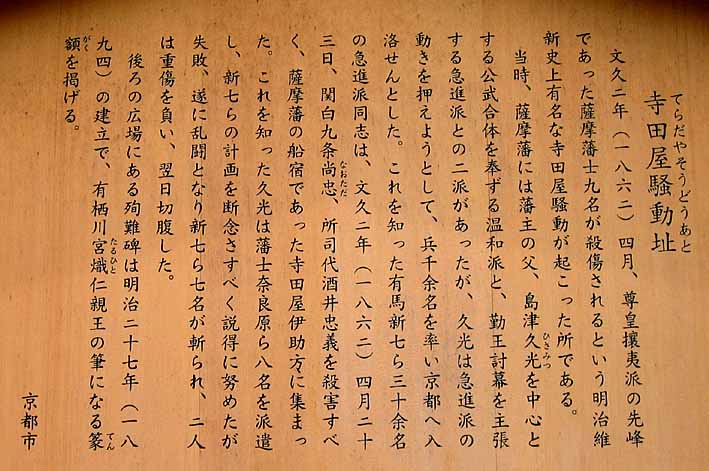 てらだやそうどうあと
寺田屋騒動址
文久二年（一八六二）四月、尊皇攘夷派の先峰
であった薩摩藩士九名が殺傷されるという明治維
新史上有名な寺田屋騒動が起こった所である。
当時、薩摩藩には藩主の父、島津久光を中心と
ひさみつ
する公武合体を奉ずる温和派と、勤王討幕を主張
する急進派との二派があったが、久光は急進派の
動きを押えようとして、兵千余名を率い京都へ入
洛せんとした。これを知った有馬新七ら三十余名
の急進派同志は、文久二年（一八六二）四月二十
三日、関白九条尚忠、所司代酒井忠義を殺害すべ
なおただ
く、薩摩藩の船宿であった寺田屋伊助方に集まっ
た。これを知った久光は藩士奈良原ら八名を派遣
し、新七らの計画を断念さすべく説得に努めたが
失敗、遂に乱闘となり新七ら七名が斬られ、二人
は重傷を負い、翌日切腹した。
後ろの広場にある殉難碑は明治二十七年（一八
九四）の建立で、有栖川宮熾仁親王の筆になる篆
たるひと
てん
額を掲げる。
がく
京都市